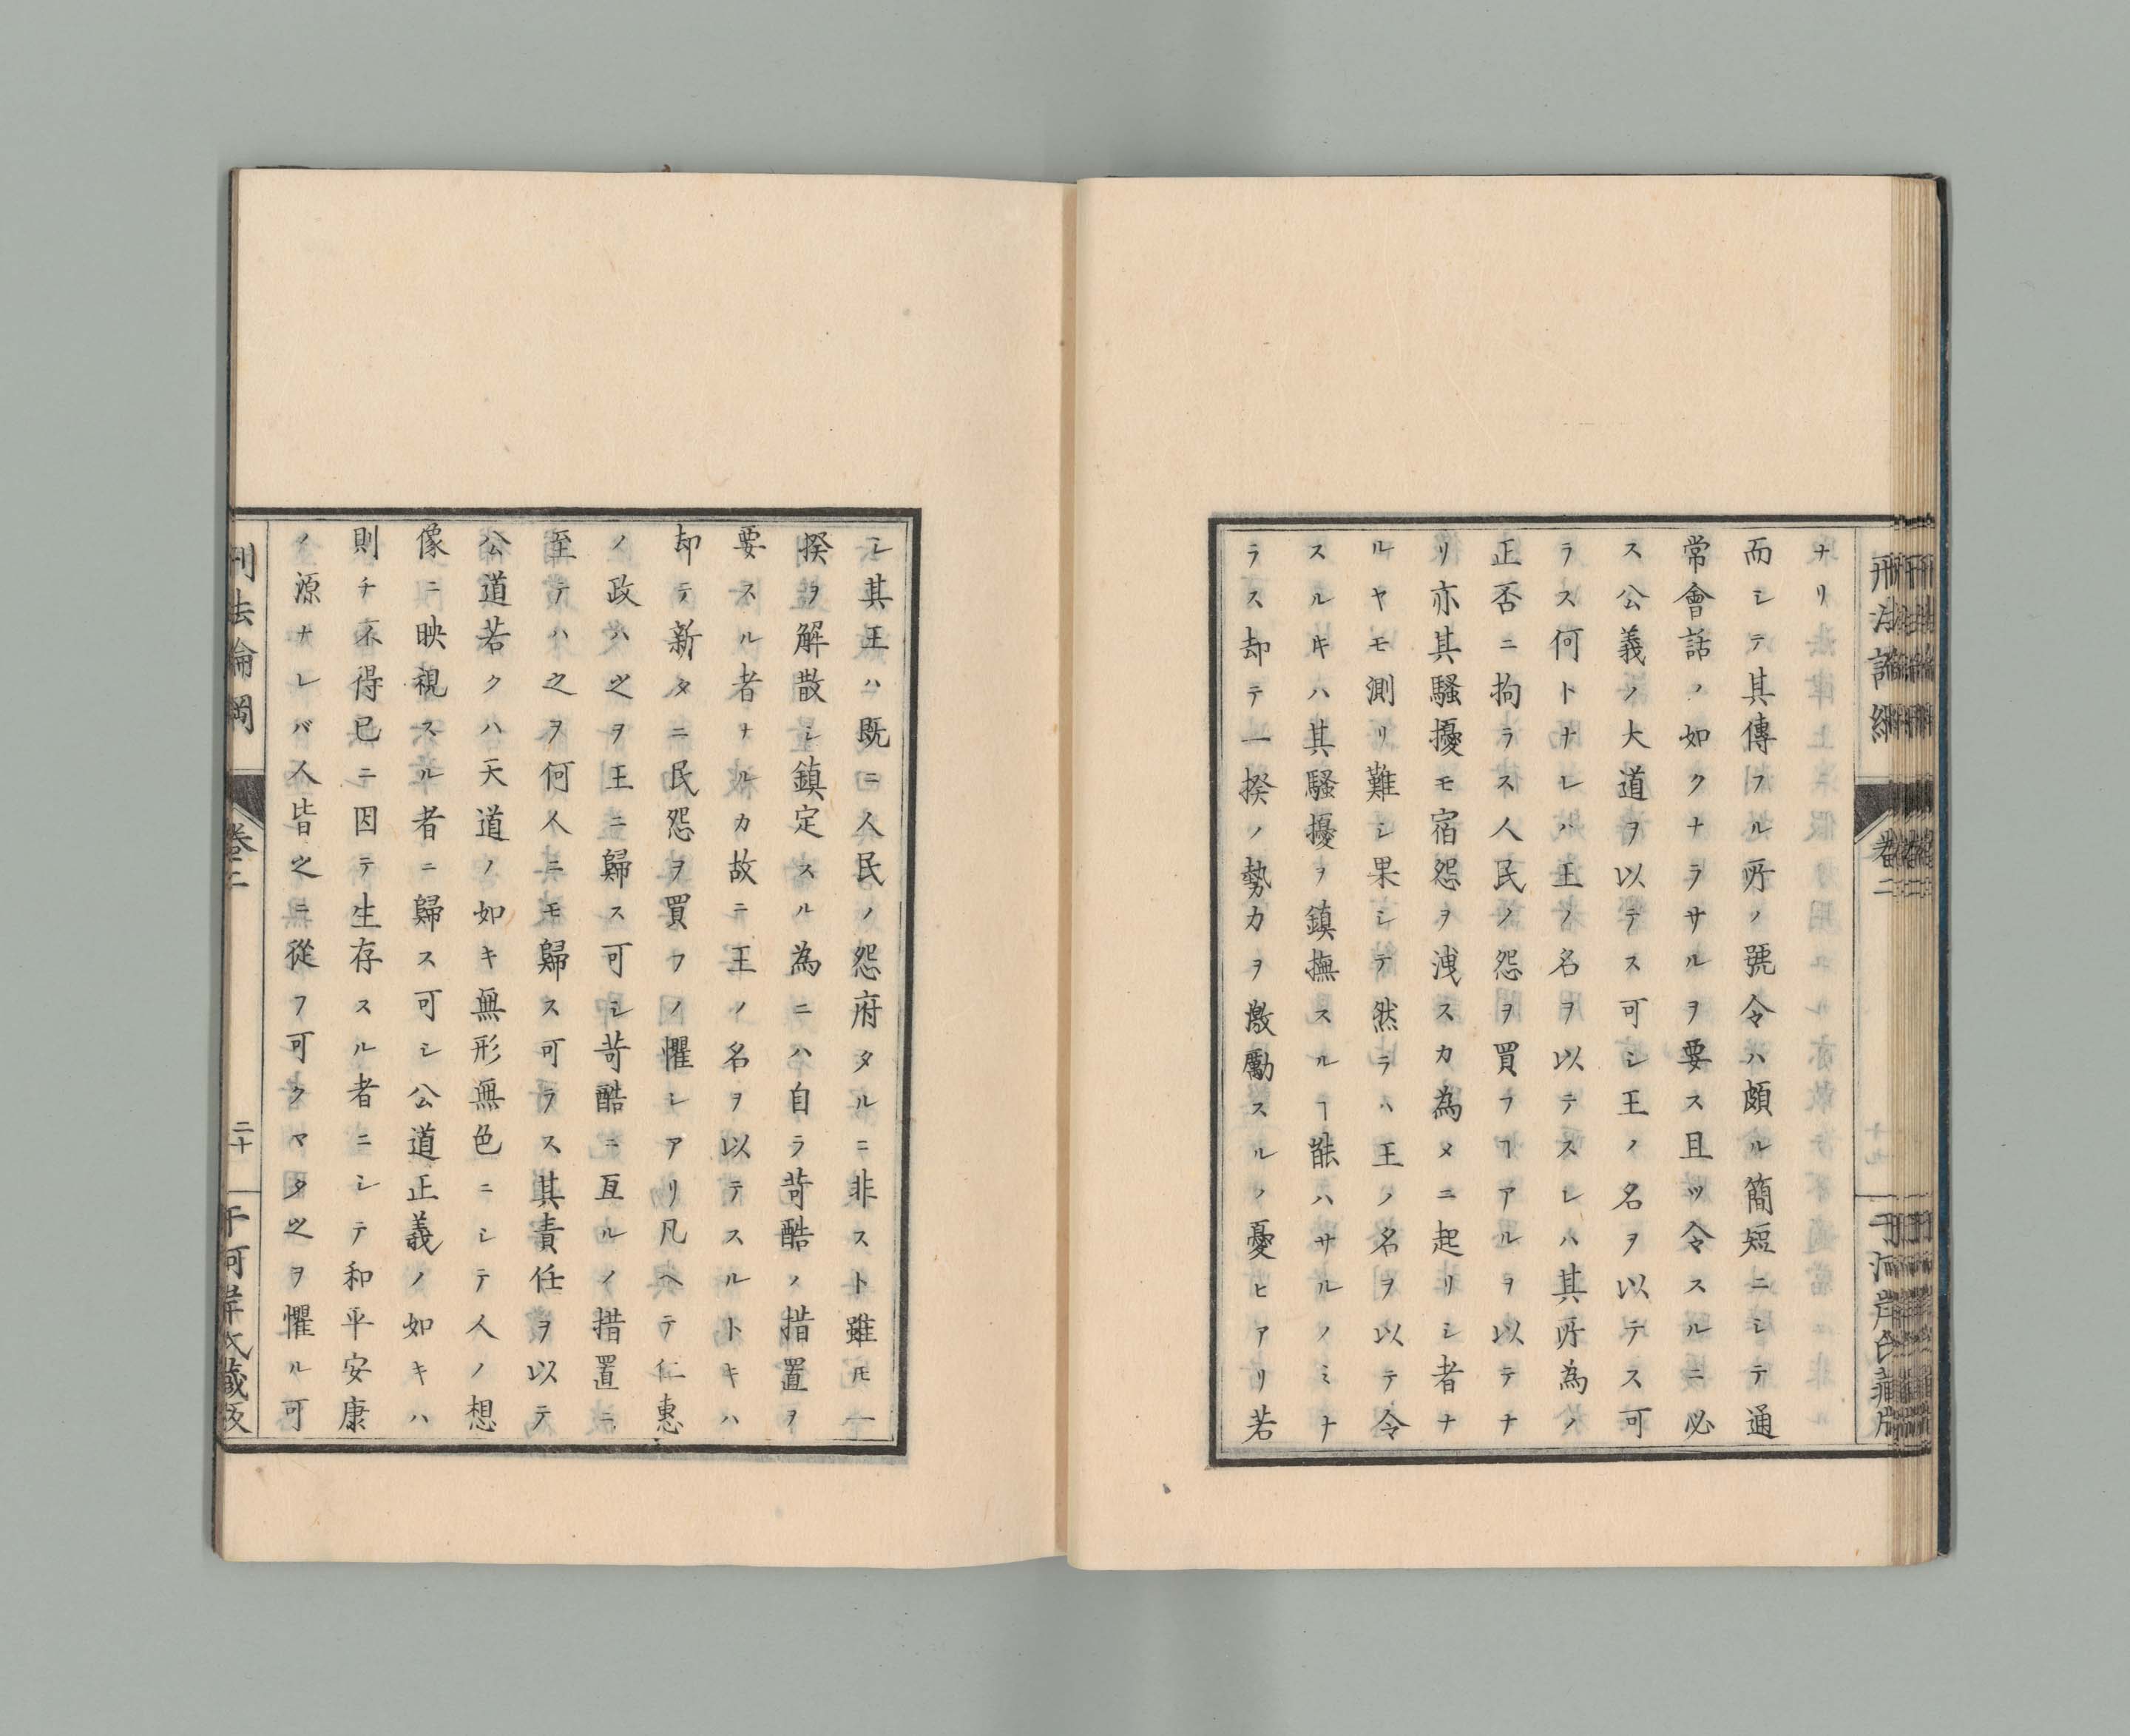 ナリ
而シテ其傳フル所ノ號令ハ頗ル簡短ニシテ通
常會話ノ如クナラサルヲ要ス且ツ令スルニ必
ス公義ノ大道ヲ以テス可シ王ノ名ヲ以テス可
ラス何トナレハ王ノ名ヲ以テスレハ其所為ノ
正否ニ拘ラス人民ノ怨ヲ買フヿアルヲ以テナ
リ亦其騷擾モ宿怨ヲ洩スカ為メニ起リシ者ナ
ルヤモ測リ難シ果シテ然ラハ王ノ名ヲ以テ令
スルキハ其騷擾ヲ鎮撫スルヿ能ハサルノミナ
ラス却テ一揆ノ勢力ヲ激勵スルノ憂ヒアリ若
刑法論綱
卷二
シ其王ハ既ニ人民ノ怨府タルニ非スト雖𪜈一
揆ヲ解散シ鎮定スル為ニハ自ラ苛酷ノ措置ヲ
要スル者ナルカ故ニ王ノ名ヲ以テスルトキハ
却テ新タニ民怨ヲ買フノ懼レアリ凡ヘテ仁惠
ノ政ハ之ヲ王ニ歸ス可シ苛酷ニ亙ルノ措置ニ
至テハ之ヲ何人ニモ歸ス可ラス其責任ヲ以テ
公道若クハ天道ノ如キ無形無色ニシテ人ノ想
像ニ映視スル者ニ歸ス可シ公道正義ノ如キハ
則チ不得已ニ因テ生存スル者ニシテ和平安康
ノ源ナレバ人皆之ニ從フ可クマタ之ヲ懼ル可
刑法論綱
卷二
二十
干河岸氏藏版